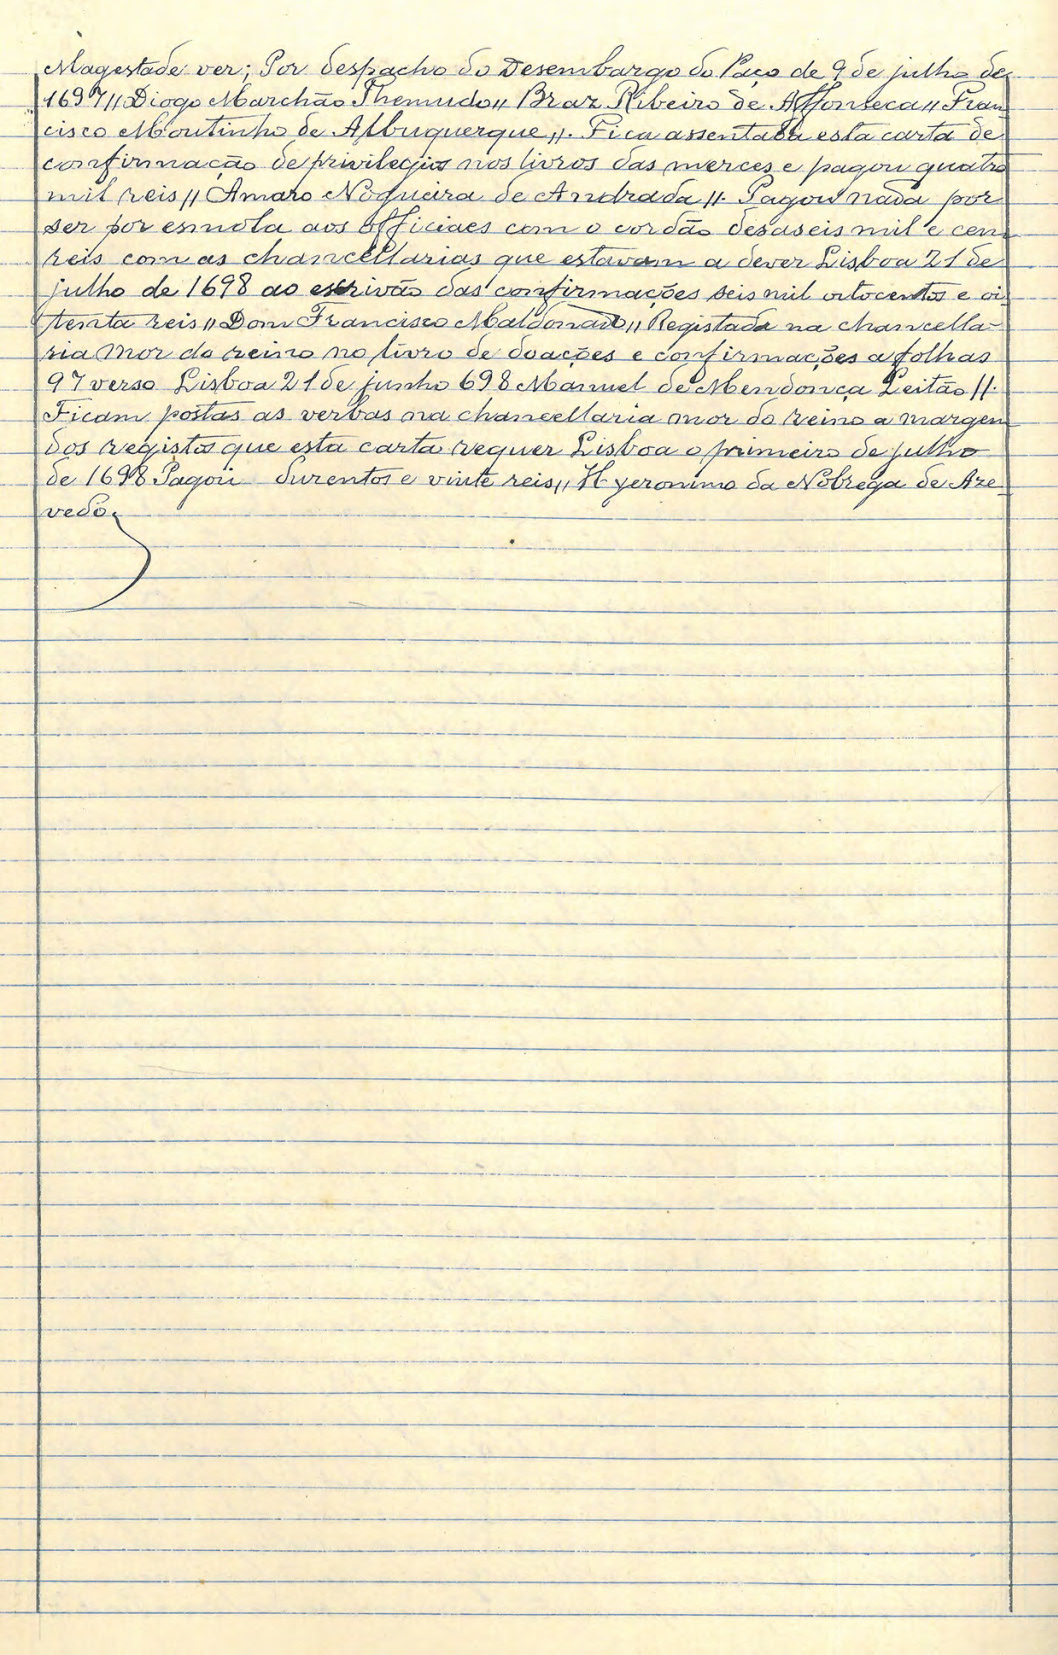 Magestade ver; Por despacho do Desembargo do Paço de 9 de julho de
1697 // Diogo Marchão Themudo // Braz Ribeiro de Affonseca // Fran
cisco Moutinho de Albuquerque //. Fica assentada esta carta de
confirmação de privilegios nos livros das merces e pagou quatro
mil reis // Amaro Nogueira de Andrada //. Pagou nada por
ser por esmola aos officiaes com o cordão desaseis mil e cem
reis com as chancellarias que estavam a dever Lisboa 21 de
julho de 1698 ao escrivão das confirmações seis mil oitocentos e oi
tenta reis // Dom Francisco Maldonado // Registada na chancella-
ria mor do reino no livro de doações e confirmações a folhas
97 verso Lisboa 21 de junho 698 Manuel de Mendonça Leitão //.
Ficam postas as verbas na chancellaria mor do reino a margem
dos registos que esta carta requer Lisboa o primeiro de julho
de 1698 Pagou durentos e vinte reis // Hyeronimo da Nobrega de Aze
vedo.